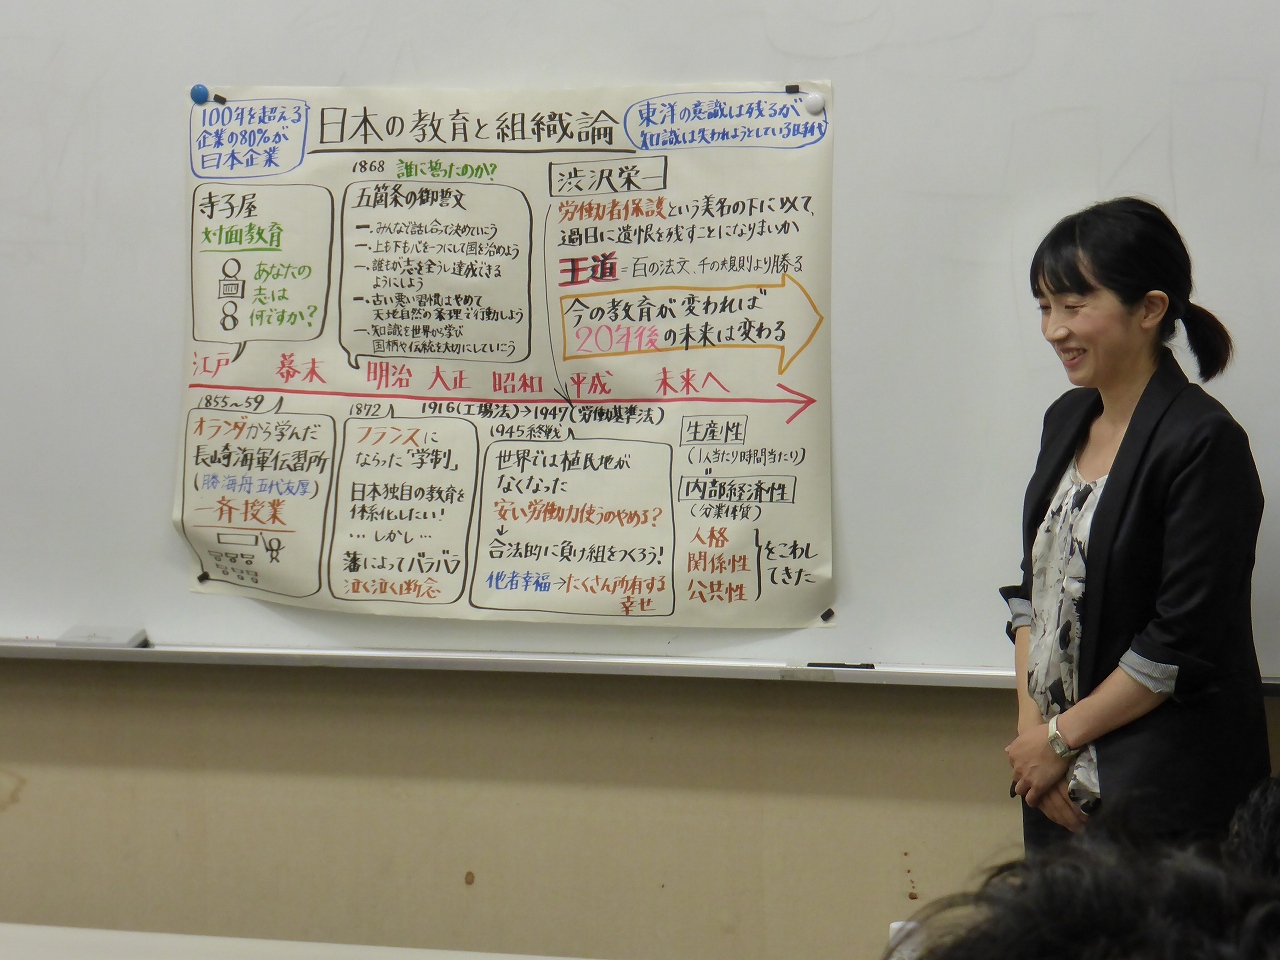 100年を超える
企業の80%が
日本企業
日本の教育と組織論
東洋の意識は残るが
知識は失われようとしている時代
寺子屋
対面教育
あなたの
志は
何ですか?
1868 誰に誓ったのか?
五箇条の御誓文
一. みんなで話し合って決めていこう
一. 上も下も心を一つにして国を治めよう
一. 誰もが志を全うし達成できる
ようにしよう
一. 古い悪い習慣はやめて
天地自然の条理で行動しよう
一. 知識を世界から学び
国柄や伝統を大切にしていこう
渋沢栄一
労働者保護という美名の下に以て、
過日に遺恨を残すことになりまいか
王道=百の法文、千の規則より勝る
今の教育が変われば
20年後の未来は変わる
江戸 幕末 明治 大正 昭和 平成 未来へ
1855~59
オランダから学んだ
長崎海軍伝習所
(勝海舟 五代友厚)
一斉授業
1872
フランスに
ならった「学制」
日本独自の教育を
体系化したい!
…しかし…
藩によってバラバラ
泣く泣く断念
1916(工場法)→1947(労働基準法)
1945終戦
世界では植民地が
なくなった
安い労働力使うのやめる?
↓
合法的に負け組をつくろう!
他者幸福→たくさん所有する
幸せ
生産性
(1人当たり時間当たり)
内部経済性
(分業体質)
人格
関係性
公共性
をこわし
てきた